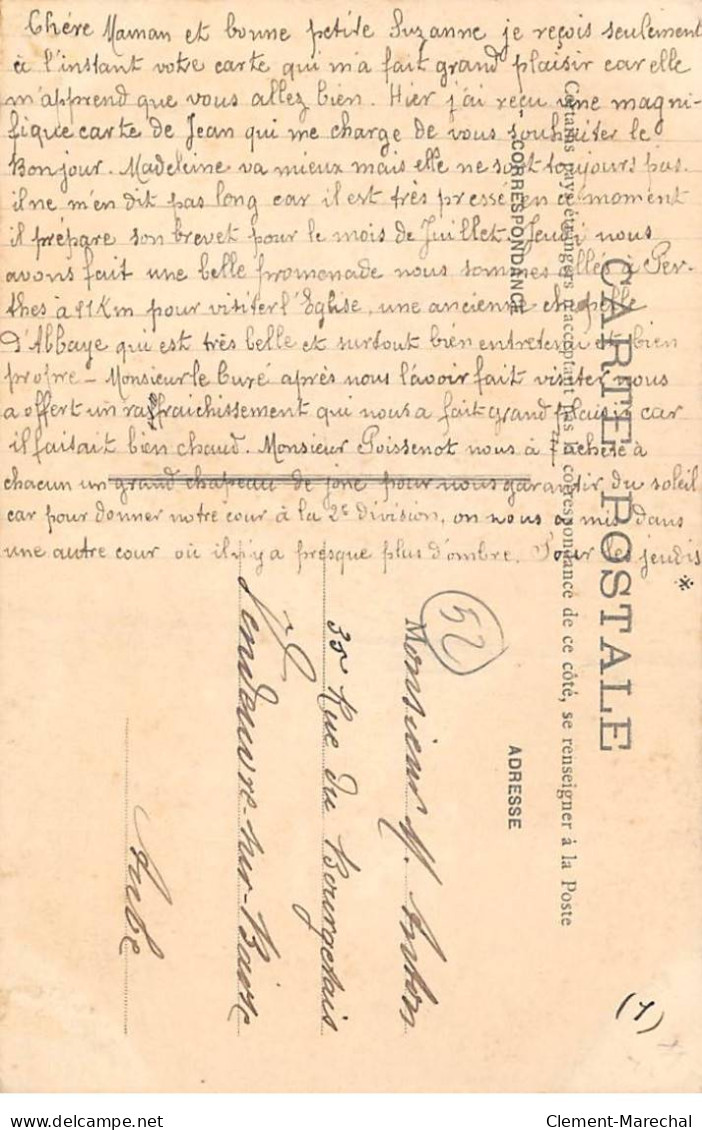 Chère Maman et bonne petite Suzanne je reçois seulement
à l'instant votre carte qui m'a fait grand plaisir car elle
m'apprend que vous allez bien. Hier j'ai reçu une magni-
fique carte de Jean qui me charge de vous souhaiter le
Bonjour. Madeleine va mieux mais elle ne sort toujours pas.
il ne m'en dit pas long car il est très pressé en ce moment
il prépare son brevet pour le mois de Juillet. Jeudi nous
avons fait une belle promenade nous sommes allés à Per-
thes à 11 Km pour visiter l'Eglise, une ancienne chapelle
d'Abbaye qui est très belle et surtout bien entretenue et bien
propre - Monsieur le Curé après nous l'avoir fait visiter nous
a offert un raffraichissement qui nous a fait grand plaisir car
il faisait bien chaud. Monsieur Poissenot nous a acheté à
chacun un grand chapeau de jonc pour nous garantir du soleil
car pour donner notre cour à la 2e division, on nous a mis dans
une autre cour où il n'y a presque plus d'ombre. Tour les jeudis
*
CARTE POSTALE
Certains pays étrangers n'acceptant pas la correspondance de ce côté, se renseigner à la Poste
CORRESPONDANCE
ADRESSE
52
Monsieur M.
35 Rue du Bourgelais
Vendeuvre-sur-Barse
Aube
(1)
delcampe.net
Clement-Marechal